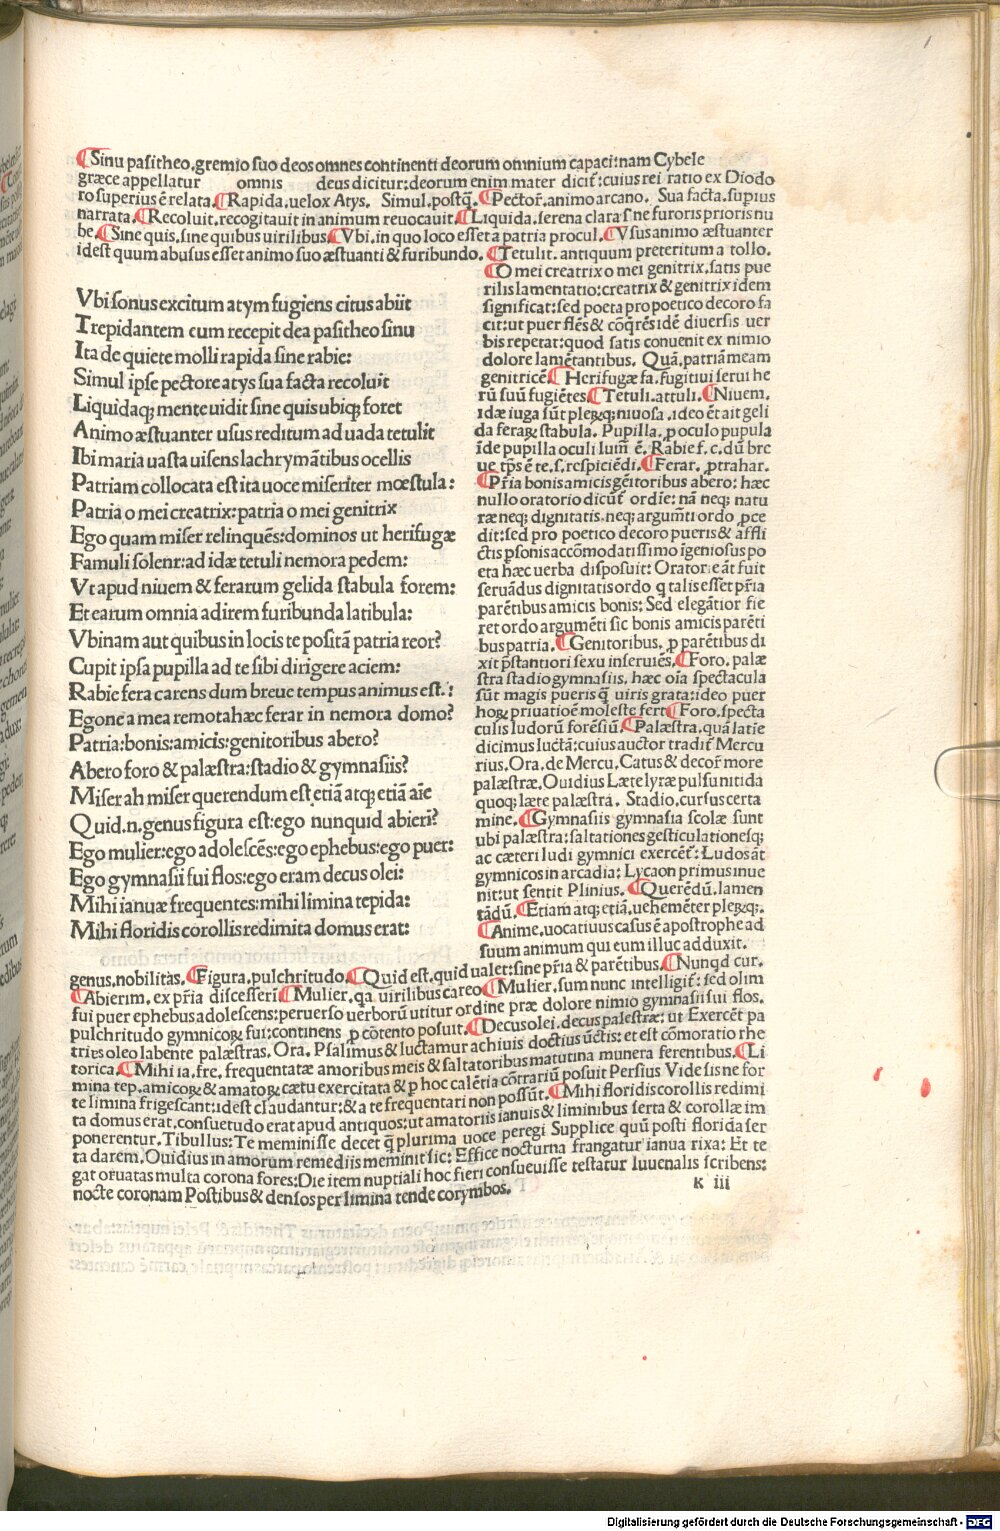 1
¶Sinu pasitheo.gremio suo deos omnes continenti deorum omnium capaci:nam Cybele
græce appellatur omnis deus dicitur:deorum enim mater dicit̃:cuius rei ratio ex Diodo
ro superius ē relata.¶Rapida.uelox Atys. Simul.postq̃.¶Pector̃.animo arcano. Sua facta.supius
narrata.¶Recoluit.recogitauit in animum reuocauit.¶Liquida.serena clara sine furoris prioris nu
be.¶Sine quis.sine quibus uirilibus.¶Vbi.in quo loco esset a patria procul.¶Vsus animo æstuanter
idest quum abusus esset animo suo æstuanti & furibundo.¶Tetulit. antiquum preteritum a tollo.
Vbi sonus excitum atym fugiens citus abiit
Trepidantem eum recepit dea pasitheo sinu
Ita de quiete molli rapida sine rabie:
Simul ipse pectore atys sua facta recoluit
Liquidaq; mente uidit sine quis ubiq; foret
Animo æstuanter usus reditum ad uada tetulit
Ibi maria uasta uisens lachrymātibus ocellis
Patriam collocata est ita uoce miseriter mœstula:
Patria o mei creatrix:patria o mei genitrix
Ego quam miser relinquēs:dominos ut herifugæ
Famuli solenr:ad idæ tetuli nemora pedem:
Vt apud niuem & ferarum gelida stabula forem:
Et earum omnia adirem furibunda latibula:
Vbinam aut quibus in locis te positā patria reor?
Cupit ipsa pupilla ad te sibi dirigere aciem:
Rabie fera carens dum breue tempus animus est.:
Egone a mea remota hæc ferar in nemora domo?
Patria:bonis:amicis:genitoribus abero?
Abero foro & palæstra:stadio & gymnasiis?
Miser ah miser querendum est etiā atq; etiā aīe
Quid.n.genus figura est:ego nunquid abieri?
Ego mulier:ego adolescēs:ego ephebus:ego puer:
Ego gymnasii fui flos:ego eram decus olei:
Mihi ianuæ frequentes:mihi limina tepida:
Mihi floridis corollis redimita domus erat:
¶O mei creatrix o mei genitrix.satis pue
rilis lamentatio:creatrix & genitrix idem
significat:sed poeta pro poetico decoro fa
cit:ut puer flēs & cōq̃rēs idē diuersis uer
bis repetat:quod satis conuenit ex nimio
dolore lamētantibus. Quā.patriā meam
genitricē.¶Herifugæ fa.fugitiui serui he
rū suū fugiētes.¶Tetuli.attuli.¶Niuem.
idæ iuga sūt pleꝝq; niuosa .ideo ēt ait geli
da feraꝝ stabula. Pupilla.ꝓ oculo pupula
īde pupilla oculi lum̄ ē. Rabie f.c.dū bre
ue tp̄s ē te.s.respiciēdi.¶Ferar. ꝓtrahar.
¶Pr̄ia bonis amicis gēitoribus abero: hæc
nullo oratorio dicūt̃ ordie: nā neq; natu
ræ neq; dignitatis.neq; argum̄ti ordo ꝓce
dit:sed pro poetico decoro pueris & affli
ctis p̱sonis accōmodatissimo īgeniosus po
eta hæc uerba disposuit: Orator:e āt fuit
seruādus dignitatis ordo q̄ talis esset pr̄ia
parētibus amicis bonis: Sed elegātior fie
ret ordo argumēti sic bonis amicis parēti
bus patria.¶Genitoribus. ꝓ parētibus di
xit p̄stantiori sexu inseruiēs.¶Foro. palæ
stra stadio gymnasiis. hæc oīa spectacula
sūt magis pueris q̄ uiris grata:ideo puer
hoꝝ priuatioē moleste fert¶Foro.specta
culis ludorū forēsiū.¶Palæstra.quā latīe
dicimus luctā:cuius auctor tradit̃ Mercu
rius.Ora.de Mercu.Catus & decor̃ more
palæstræ.Ouidius Læte lyræ pulsu nitida
quoq; læte palæstra. Stadio.cursus certa
mine.¶Gymnasiis gymnasia scolæ sunt
ubi palæstra:saltationes gesticulationesq;
ac cæteri ludi gymnici exercēt̃: Ludos āt
gymnicos in arcadia: Lycaon primus inue
nit:ut sentit Plinius.¶Querēdū.lamen
tādū.¶Etiam atq; etiā.uehemēter pleꝝq;.
¶Anime.uocatiuus casus ē apostrophe ad
suum animum qui eum illuc adduxit.
genus.nobilitas.¶Figura.pulchritudo.¶Quid est.quid ualet:sine pr̄ia & parētibus.¶Nunqd cur.
¶Abierim. ex pr̄ia discesseri¶Mulier.qa uirilibus careo¶Mulier.sum nunc intelligit̃: sed olim
fui puer ephebus adolescens:peruerso uerborū utitur ordine præ dolore nimio gymnasii sui flos.
pulchritudo gymnicoꝝ fui:continens ꝓ cōtento posuit.¶Decus olei.decus palestræ: ut Exercēt pa
trites oleo labente palæstras. Ora. Psalimus & luctamur achiuis doctius ūctis: et est cōmoratio rhe
torica.¶Mihi ia.fre. frequentatæ amoribus meis & saltatoribus matutina munera ferentibus.¶Li
mina tep.amicoꝝ & amatoꝝ cætu exercitata & ꝓ hoc calētia cōtrariū posuit Persius Vide sis ne for
te limina frigescant:idest claudantur:& a te frequentari non possūt.¶Mihi floridis corollis redimi
ta domus erat.consuetudo erat apud antiquos:ut amatoriis ianuis & liminibus serta & corollæ im
ponerentur. Tibullus: Te meminisse decet q̄ plurima uoce peregi Supplice quū posti florida ser
ta darem. Ouidius in amorum remediis meminit sic: Effice nocturna frangatur ianua rixa: Et te
gat oruatas multa corona fores: Die item nuptiali hoc fieri consueuisse testatur Iuuenalis scribens:
nocte coronam Postibus & densos per limina tende corymbos.
K iii
Digitalisierung gefördert durch die Deutsche Forschungsgemeinschaft - DFG